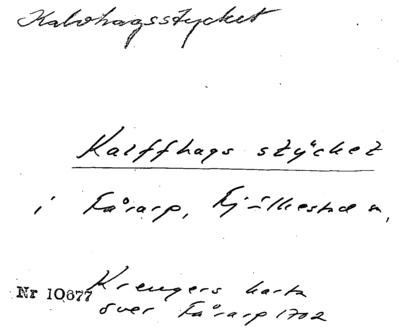 Kalvhagsstycket
Kalffhags stÿcket
i Fårarp, Fjälkestad sn,
Nr 10677 Krengers karta
över Fårarp 1702